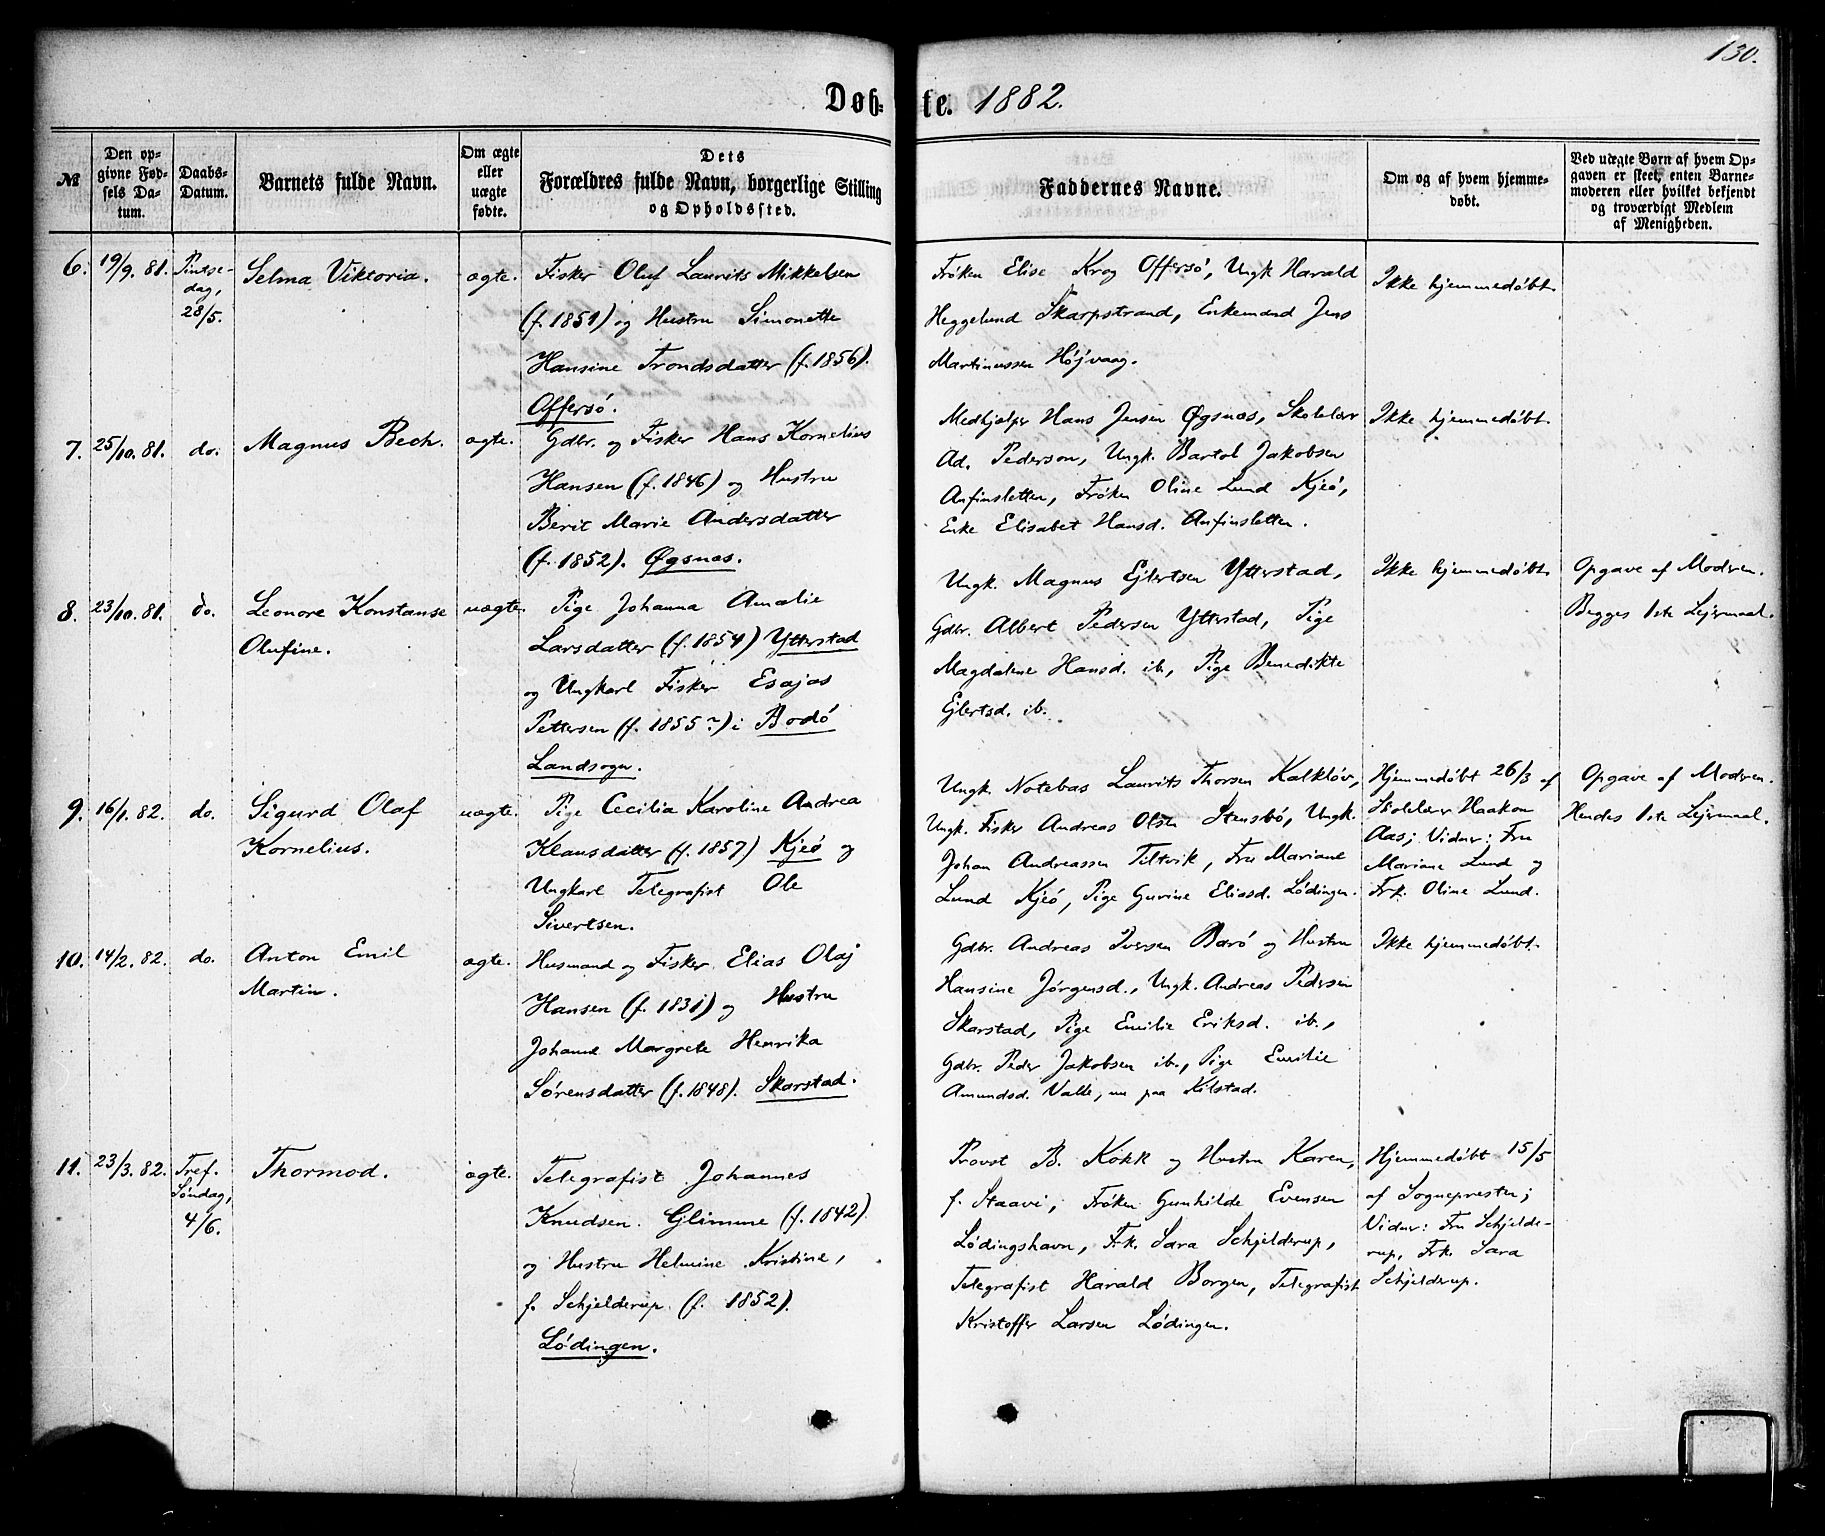 130.
Døbte. 1882.
№
Den opgivne Fødsels Datum.
Daabs-Datum.
Barnets fulde Navn.
Om ægte eller uægte fødte.
Dets Forældres fulde Navn, borgerlige Stilling og Opholdssted.
Faddernes Navne.
Om og af hvem hjemmedøbt.
Ved uægte Børn af hvem Opgaven er skeet, enten Barnemoderen eller hvilket bekjendt og troværdigt Medlem af Menigheden.
6. 19/9. 81. Pintse-
dag,
28/5.
Selma Viktoria.
ægte.
Fisker Oluf Laurits Mikkelsen
(f. 1851) og Hustru Simonette
Hansine Trondsdatter (f. 1856).
Offersö.
Fröken Elise Krog Offersö, Ungk Harald
Heggelund Skarpstrand, Enkemand Jens
Martinussen Höjvaag.
Ikke hjemmedöbt.
7. 25/10. 81. do. Magnus Bech. ægte.
Gdbr. og Fisker Hans Kornelius
Hansen (f. 1846) og Hustru
Berit Marie Andersdatter
(f. 1852). Øgsnæs.
Medhjælper Hans Jensen Øgsnæs, Skolelær
Ad. Pederson, Ungk. Bartol Jakobsen
Anfinsletten, Fröken Oline Lund Kjeö,
Enke Elisabet Hansd. Anfinsletten.
Ikke hjemmedöbt.
8. 23/10. 81. do. Leonore Konstanse
Olufine.
uægte.
Pige Johanna Amalie
Larsdatter (f. 1854) Ytterstad
og Ungkarl Fisker Esajas
Pettersen (f. 1855?) i Bodö
Landsogn.
Ungk. Magnus Ejlertsen Ytterstad,
Gdbr. Albert Pedersen Ytterstad, Pige
Magdalene Hansd. ib., Pige Benedikte
Ejlertsd. ib.
Ikke hjemmedöbt.
Opgave af Modren.
Begges 1ste Lejermaal.
9. 16/1. 82. do. Sigurd Olaf
Kornelius.
uægte.
Pige Cecilia Karoline Andrea
Klausdatter (f. 1857) Kjeö og
Ungkarl Telegrafist Ole
Sivertsen.
Ungk. Notebas Laurits Thorsen Kalkløv,
Ungk. Fisker Andreas Olsen Stensbö, Ungk.
Johan Andreassen Tiltvik, Fru Mariane
Lund Kjeö, Pige Gurine Eliasd. Lödingen.
Hjemmedöbt 26/3 af
Skolelærer Haakon
Aas; Vidner: Fru
Mariane Lund og
Frk. Oline Lund.
Opgave af Modren.
Hendes 1ste Lejermaal.
10. 14/2. 82. do. Anton Emil
Martin.
ægte.
Husmand og Fisker Elias Olaj
Hansen (f. 1831) og Hustru
Johanne Margrete Henrika
Sörensdatter (f. 1848). Skarstad.
Gdbr. Andreas Iversen Barö og Hustru
Hansine Jörgensd., Ungk. Andreas Pedersen
Skarstad, Pige Emilie Eriksd. ib.,
Gdbr. Peder Jakobsen ib., Pige Emilie
Amundsd. Valle, nu paa Kilstad.
Ikke hjemmedöbt.
11. 23/3. 82. Tref.
Söndag,
4/6.
Thormod.
ægte.
Telegrafist Johannes
Knudsen Glimme (f. 1842)
og Hustru Helmine Kristine,
f. Schjelderup (f. 1852).
Lödingen.
Provst B. Kokk og Hustru Karen,
f. Staavi, Fröken Gunhilde Evensen
Lödingshavn, Frk. Sara Schjelderup,
Telegrafist Harald Borgen, Telegrafist
Kristoffer Larsen Lödingen.
Hjemmedöbt 15/5
af Sognepresten;
Vidner: Fru Schjelde-
rup, Frk. Sara
Schjelderup.